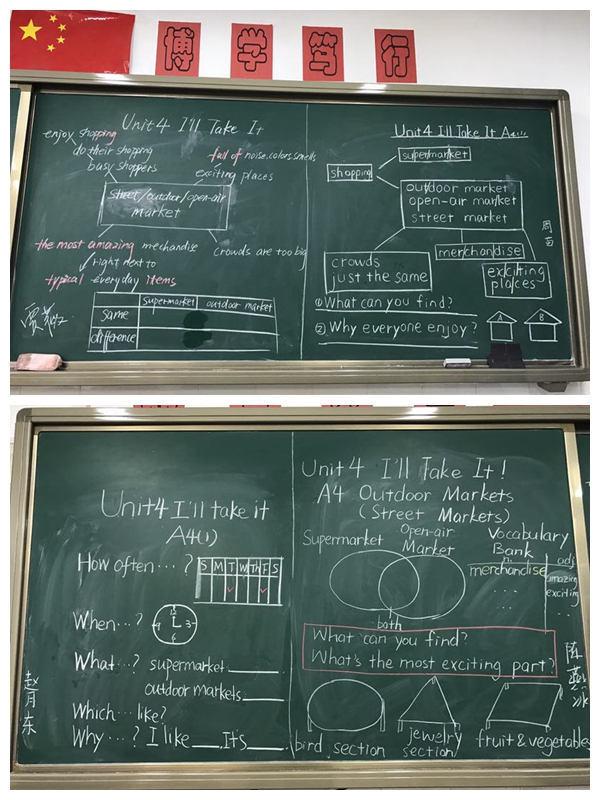 博学笃行
Unit 4 I'll Take It
enjoy shopping
do their shopping
busy shoppers
full of noise.colors.smells
exciting places
street/outdoor/open-air
market
the most amazing mechandise
right next to
typical everyday items
crowds are too big
supermarket outdoor market
same
difference
Unit 4 I'll Take It A4(1)
shopping
supermarket
outdoor market
open-air market
street market
crowds
just the same
merchandise
exciting
places
① What can you find?
② Why everyone enjoy?
A B
Unit4 I'll take it
A4(1)
How often…?
S M T W Th F S
When…?
12 3 6 9
What…? supermarket
outdoor markets
Which… like?
Why…? I like It's
赵月东
Unit 4 I'll Take It!
A4 Outdoor Markets
(Street Markets)
Supermarket
Open-air
Market
both
Vocabulary
Bank
n. adj
merchandise
amazing
exciting
...
...
What can you find?
What's the most exciting part?
bird section
jewelry
section
fruit & vegetables